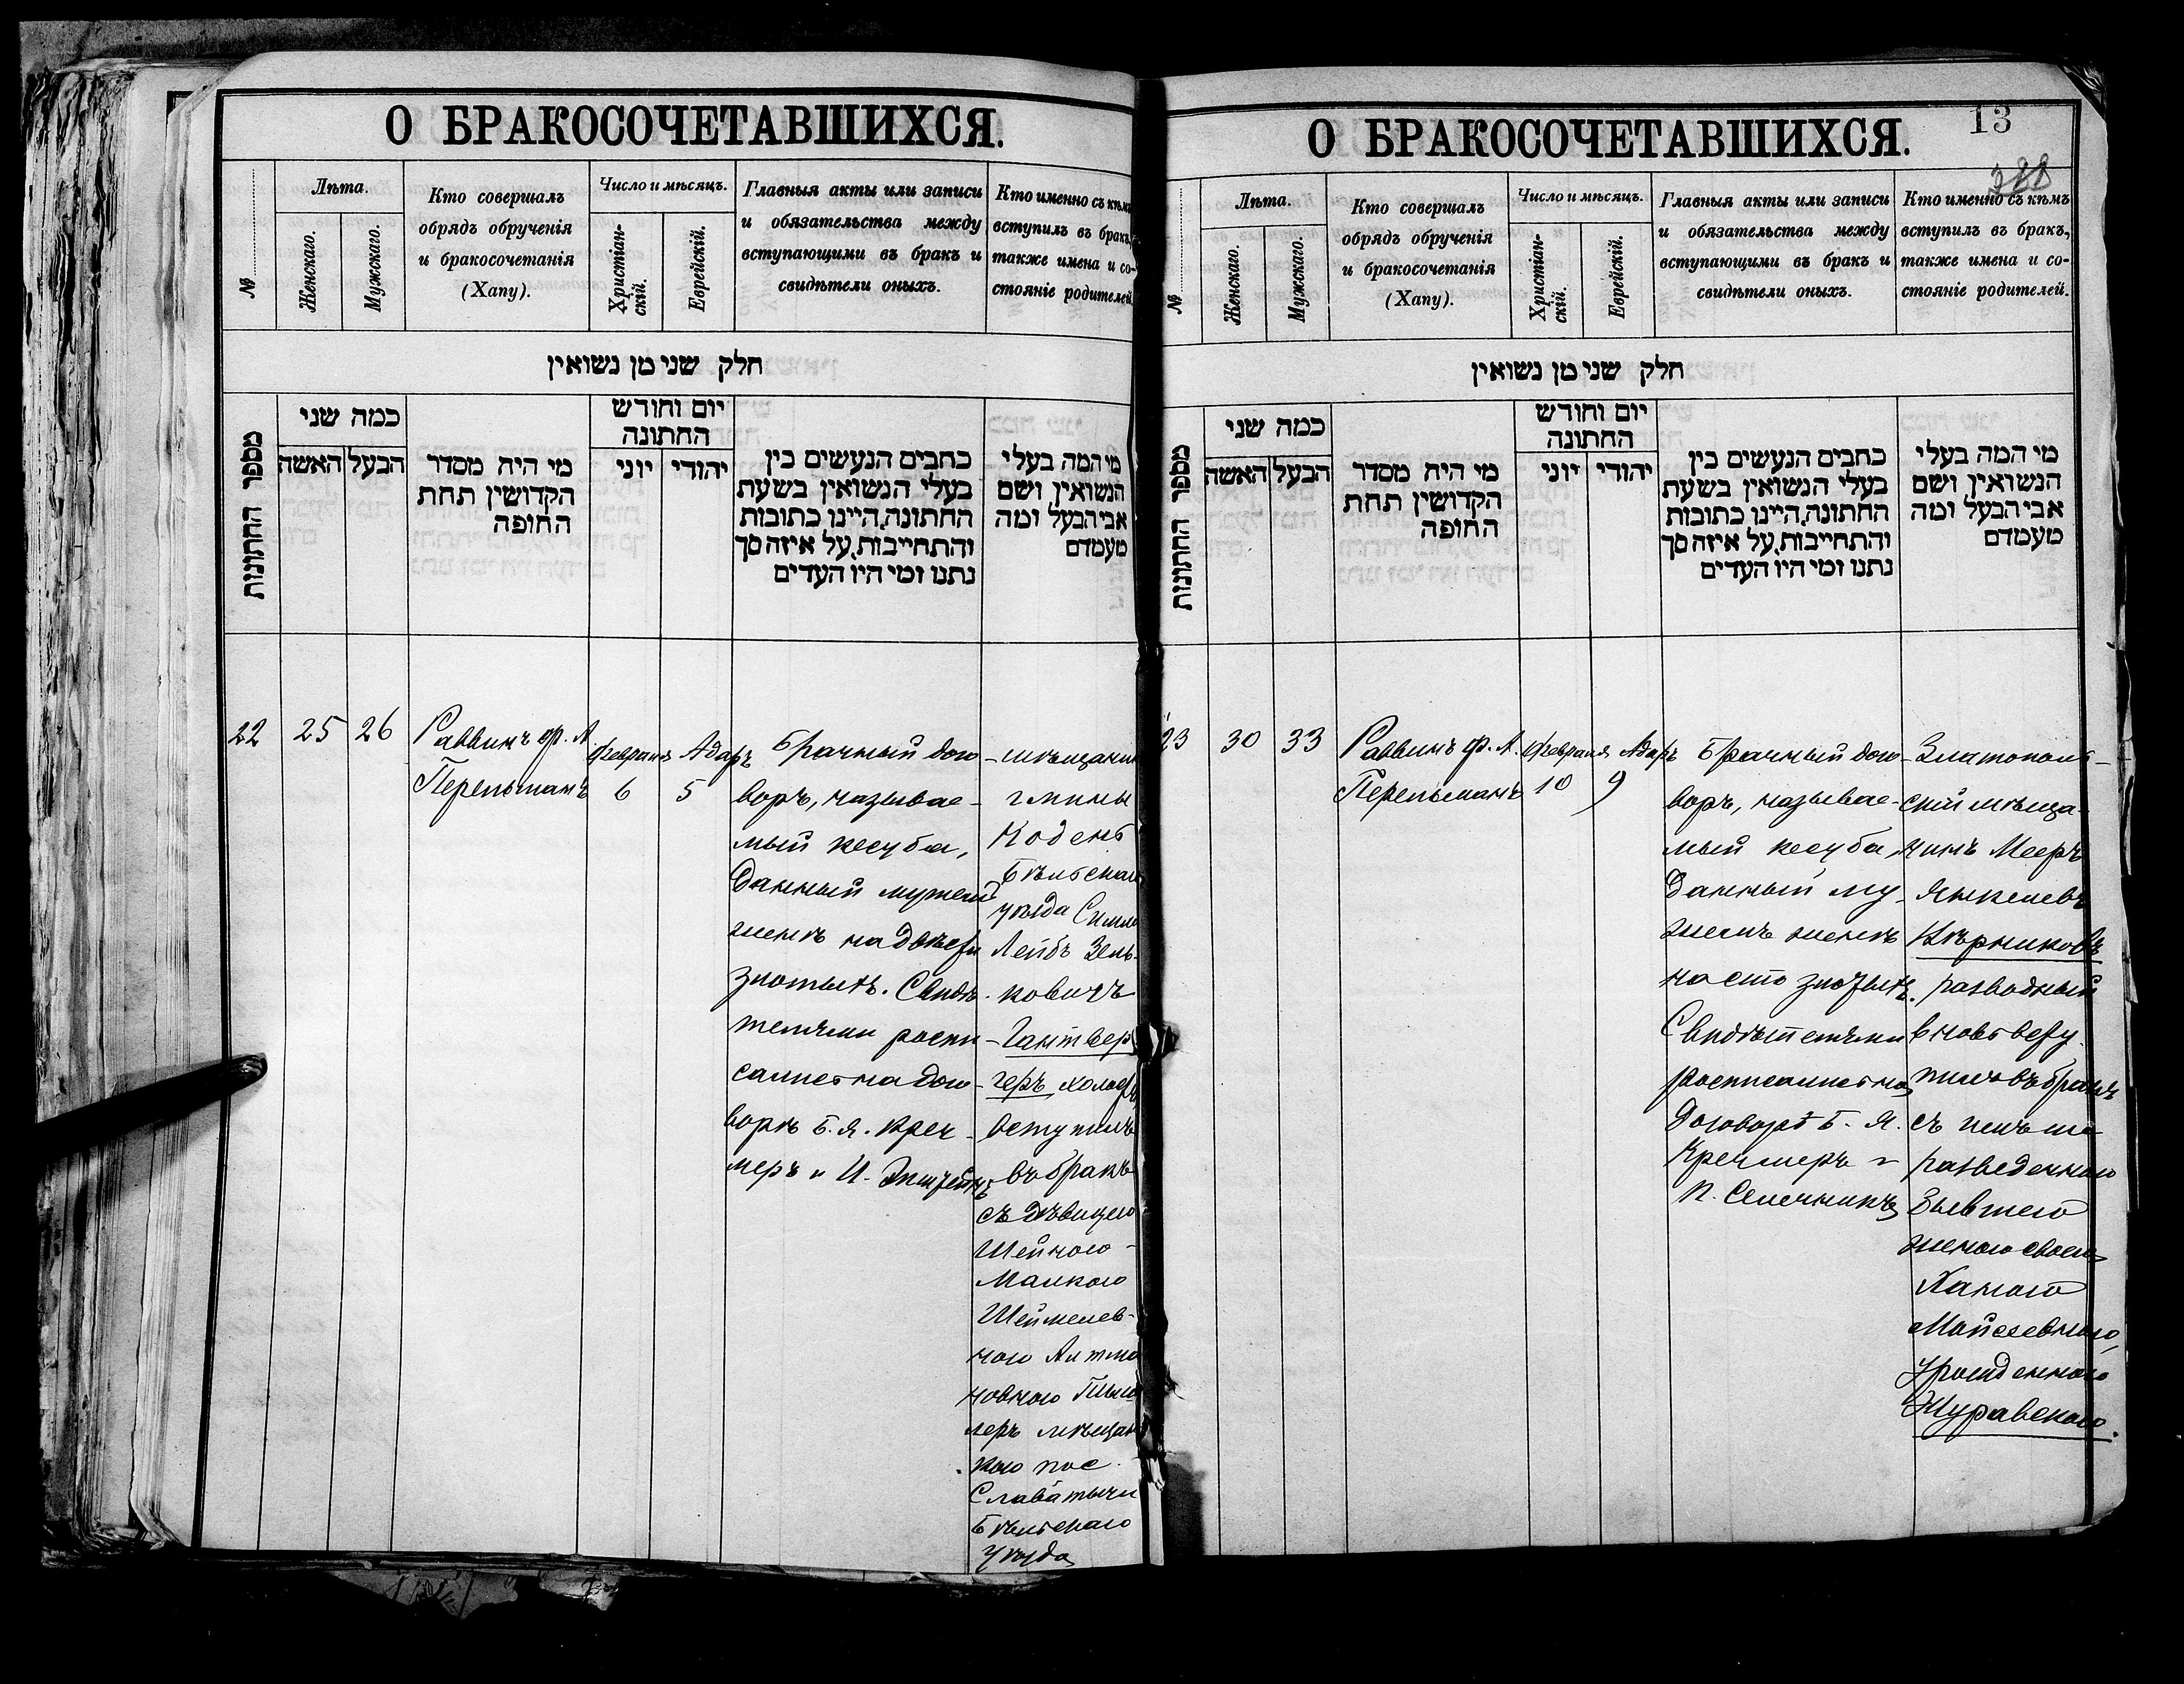 О БРАКОСОЧЕТАВШИХСЯ.
№
Лѣта.
Женскаго.
Мужскаго.
Кто совершалъ
обрядъ обрученія
и бракосочетанія
(Хапу).
Число и мѣсяцъ.
Христіан-
скій.
Еврейскій.
Главныя акты или записи
и обязательства между
вступающими въ бракъ и
свидѣтели оныхъ.
Кто именно съ кѣмъ
вступилъ въ бракъ,
также имена и со-
стояніе родителей.
חלק שני מן נשואין
מספר החתונות
כמה שני
הבעל האשה
מי היה מסדר
הקדושין תחת
החופה
יום וחודש
החתונה
יהודי יוני
כתבים הנעשים בין
בעלי הנשואין בשעת
החתונה, היינו כתובות
והתחייבות, על איזה סך
נתנו ומי היו העדים
מי המה בעלי
הנשואין, ושם
אבי הבעל ומה
מעמדם
22
25
26
Раввинъ Ф. А
Перельманъ
Февраля
6
Адаръ
5
Брачный дого-
воръ, называе-
мый кесуба,
данный мужемъ
женѣ на двѣсти
злотыхъ. Свидѣ-
телями роспи-
сались на дого-
ворѣ Б. Я. Креч-
меръ и И. Эпштейнъ
мѣщанинъ
гмины
Кодень
Бѣльскаго
уѣзда
Лейбъ Зель-
ковичъ
Гантвер
геръ, холост
вступилъ
въ бракъ
съ дѣвицею
Шейною-
Малкою
мѣщан
кою пос.
Славатычи
Бѣльскаго
уѣзда
О БРАКОСОЧЕТАВШИХСЯ.
13
388
№
Лѣта.
Женскаго.
Мужскаго.
Кто совершалъ
обрядъ обрученія
и бракосочетанія
(Хапу).
Число и мѣсяцъ.
Христіан-
скій.
Еврейскій.
Главныя акты или записи
и обязательства между
вступающими въ бракъ и
свидѣтели оныхъ.
Кто именно съ кѣмъ
вступилъ въ бракъ,
также имена и со-
стояніе родителей.
חלק שני מן נשואין
מספר החתונות
כמה שני
הבעל האשה
מי היה מסדר
הקדושין תחת
החופה
יום וחודש
החתונה
יהודי יוני
כתבים הנעשים בין
בעלי הנשואין בשעת
החתונה, היינו כתובות
והתחייבות, על איזה סך
נתנו ומי היו העדים
מי המה בעלי
הנשואין, ושם
אבי הבעל ומה
מעמדם
23
30
33
Раввинъ Ф. А.
Перельманъ
Февраля
10
Адаръ
9
Брачный дого-
воръ, называе-
мый кесуба,
данный му-
жемъ женѣ
на сто злотыхъ.
Свидѣтелями
росписались на
договорѣ Б. Я.
Кречмеръ и
П. Селечникъ
Златополь-
скій мѣща-
нинъ Мееръ
Янкелевъ
разводный
вновь всту-
пилъ въ бракъ
съ
разведенною
бывшею
женою своею
Ханою
Мойсеевною,
урожденною
Журавскою.